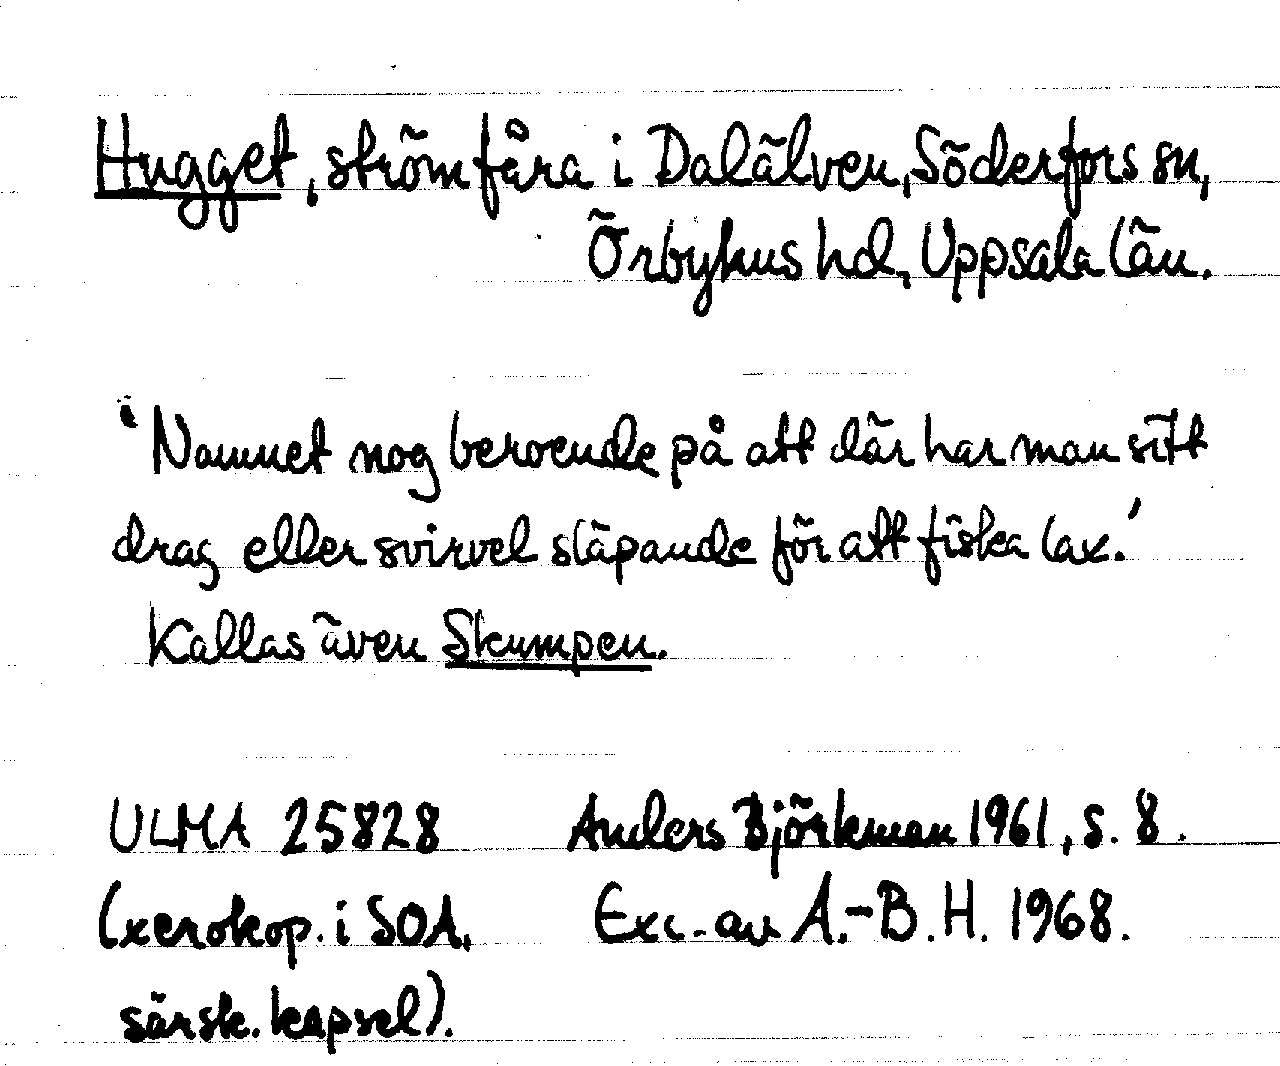 Hugget, strömfåra i Dalälven, Söderfors sn,
Örbyhus hd, Uppsala län.
'Namnet nog beroende på att där har man sitt
drag eller svirvel släpande för att fiska lax.'
Kallas även Skumpen.
ULMA 25828 Anders Björkman 1961, s. 8.
(xerokop. i SOA, Exc. av A.-B. H. 1968.
särsk. kapsel).